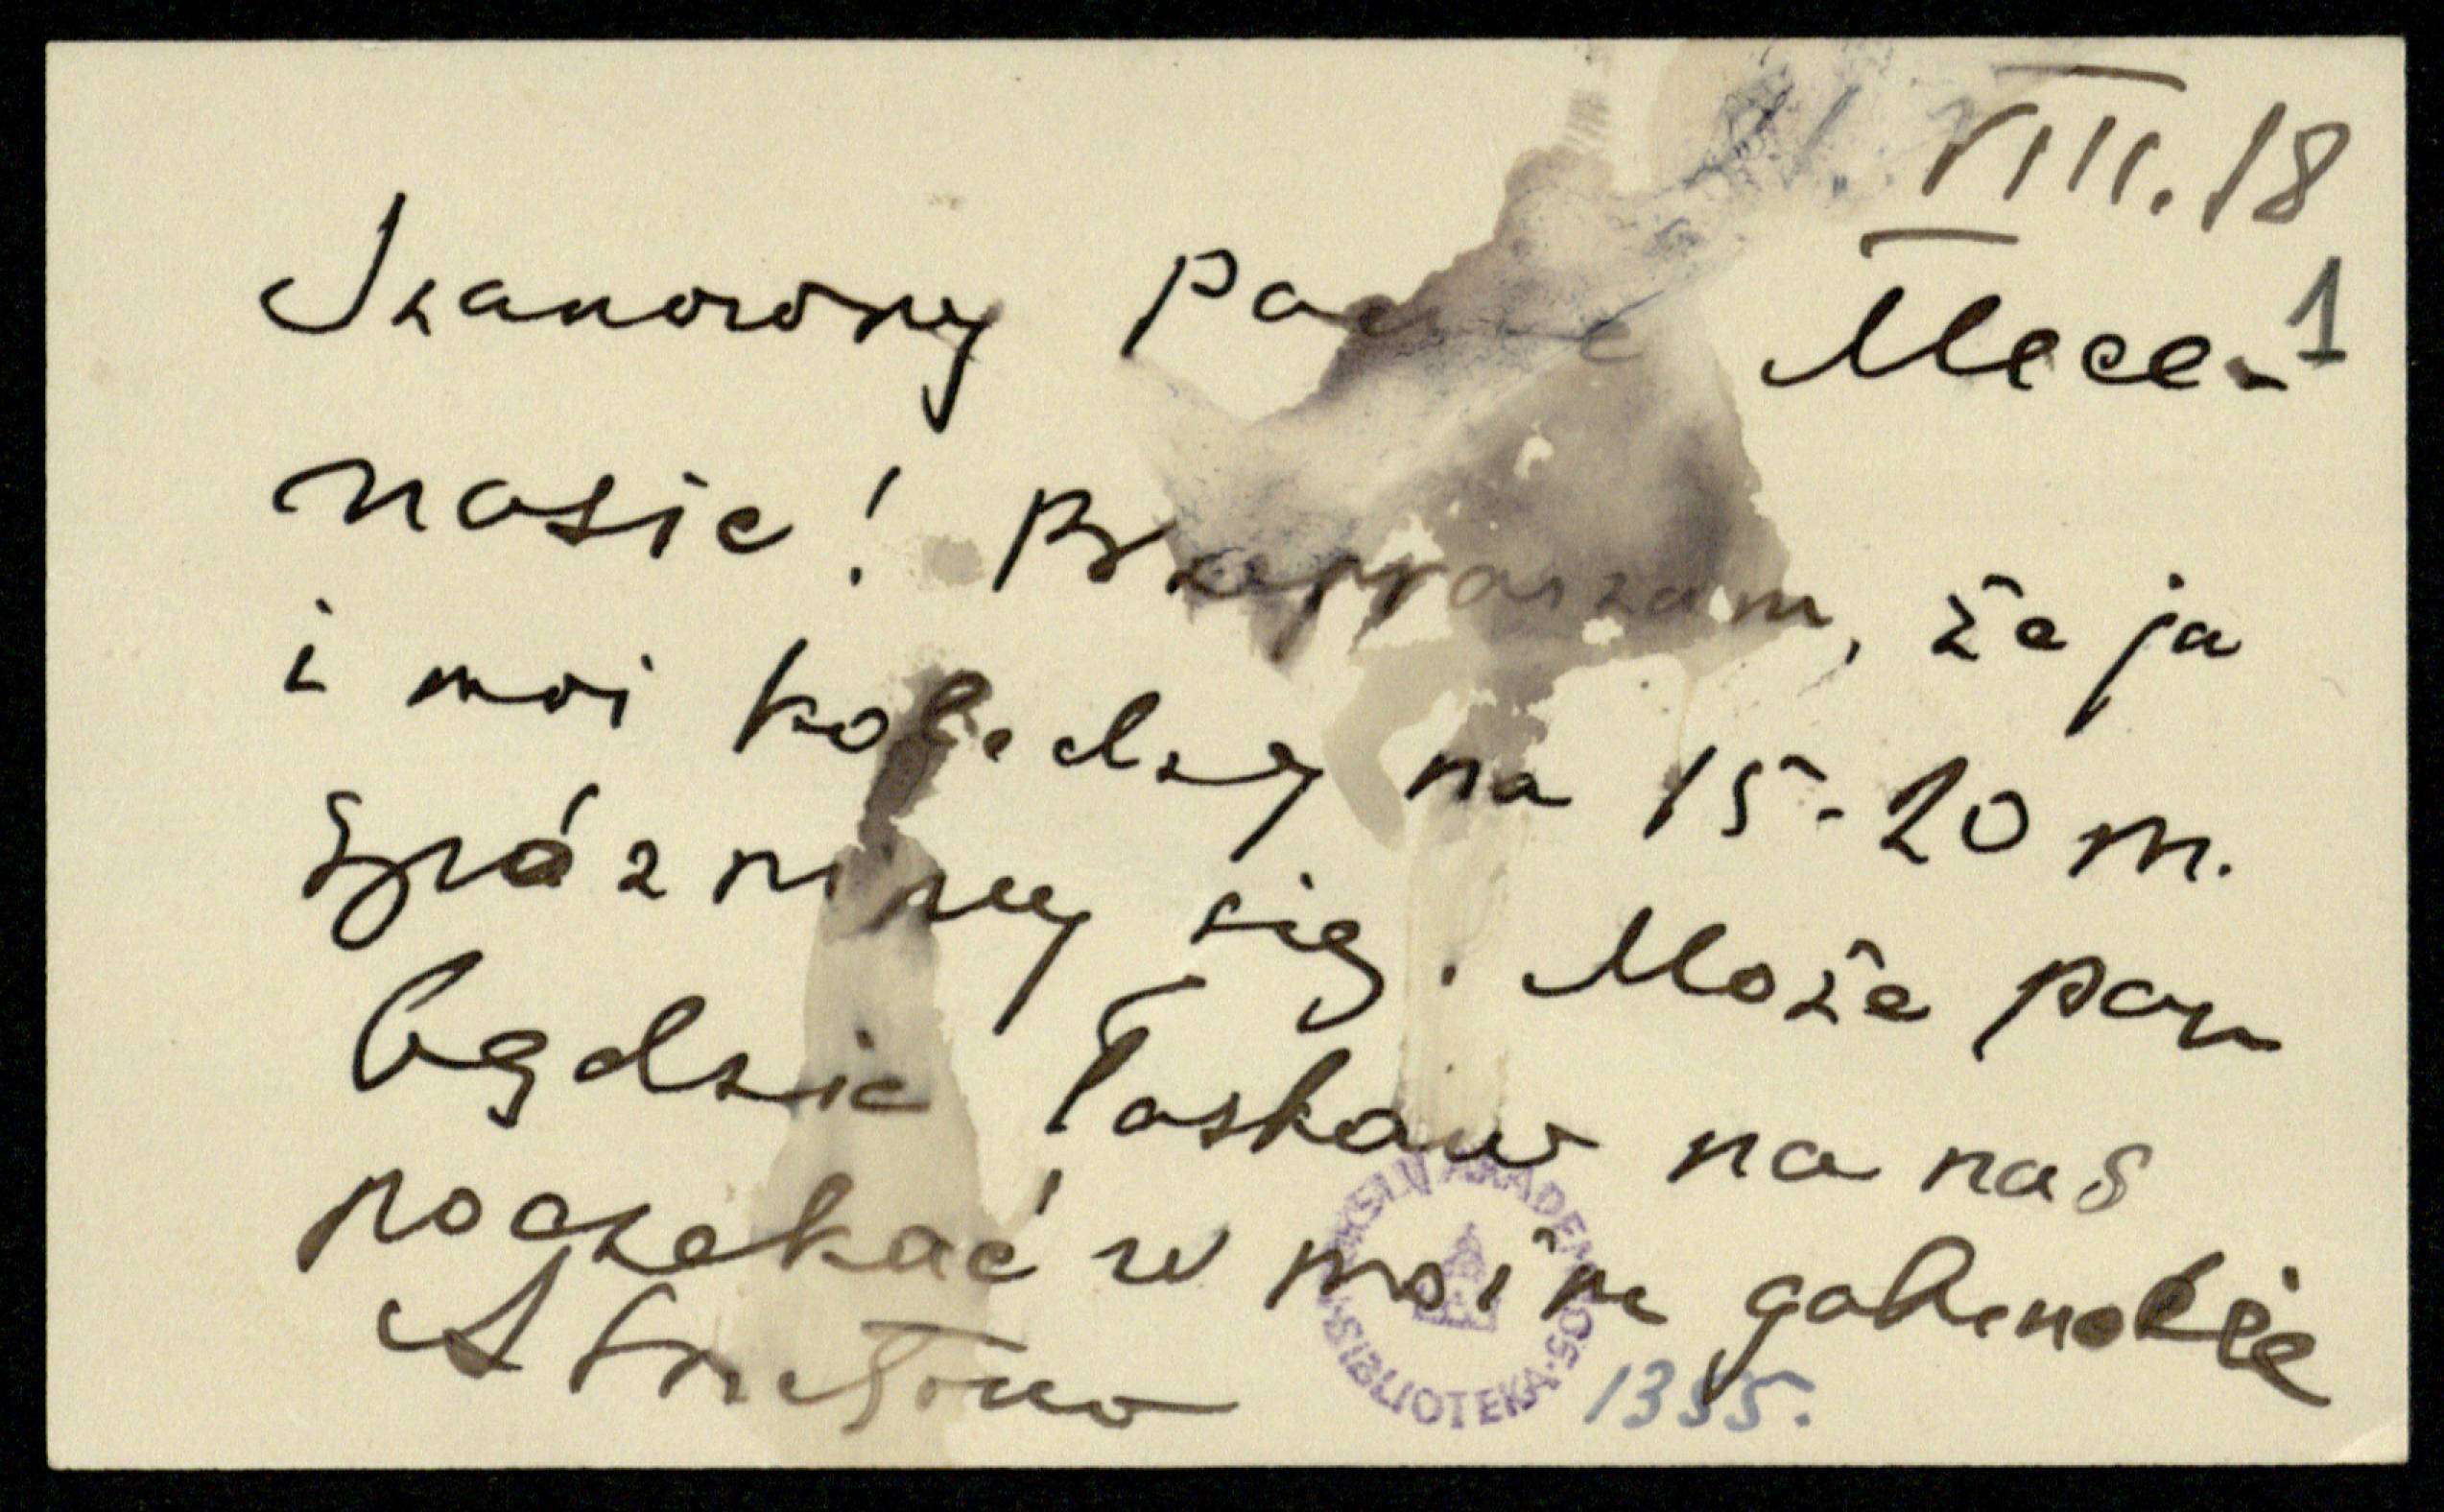 VIII. 18
1
Szanowny Panie Mece-
nasie! Przepraszam, że ja
i moi koledzy na 15-20 m.
spóźnimy się. Może pan
będzie łaskaw na nas
poczekać w moim gabinecie
A
BIBLIOTEKA
1355.